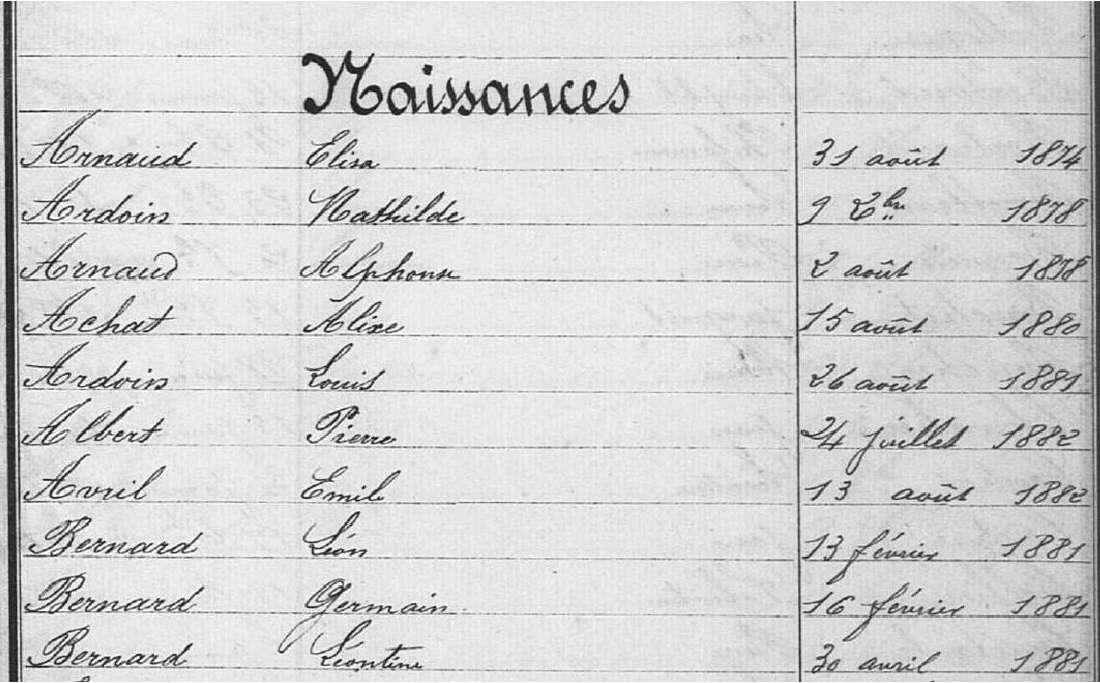 Naissances
Arnaud Elisa 31 août 1874
Ardoin Mathilde 9 Xbre 1878
Arnaud Alphonse 2 août 1878
Achat Alixe 15 août 1880
Ardoin Louis 26 août 1881
Albert Pierre 24 juillet 1882
Avril Emile 13 août 1882
Bernard Léon 13 février 1881
Bernard Germain 16 février 1881
Bernard Léontine 30 avril 1881